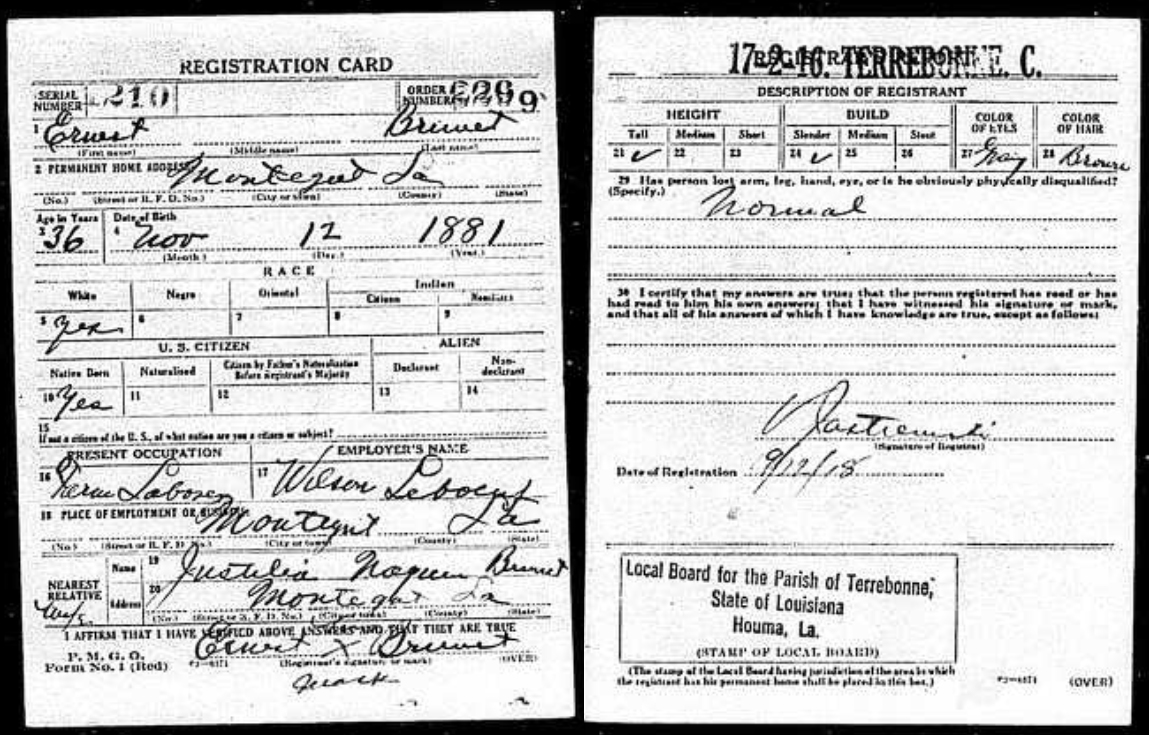 REGISTRATION CARD
SERIAL NUMBER 1210 ORDER NUMBER
1 Ernest Brunet
(First name) (Middle name) (Last name)
2 PERMANENT HOME ADDRESS Montegut La
(No.) (Street or R. F. D. No.) (City or town) (County) (State)
Age in Years Date of Birth
3 36 4 Nov 12 1881
(Month) (Day) (Year)
RACE
White Negro Oriental Indian
Citizen Noncitizen
5 Yes 6 7 8 9
U. S. CITIZEN ALIEN
Native Born Naturalized Citizen by Father's Naturalization Before Registrant's Majority Declarant Non-declarant
10 Yes 11 12 13 14
15
If not a citizen of the U. S., of what nation are you a citizen or subject?
PRESENT OCCUPATION EMPLOYER'S NAME
16 Farm Laborer 17 Wilson Leboeuf
18 PLACE OF EMPLOYMENT OR BUSINESS Montegut La
(No.) (Street or R. F. D. No.) (City or town) (County) (State)
NEAREST RELATIVE Name 19 Naquin Brunet
Wife Address 20 Montegut La
(No.) (Street or R. F. D. No.) (City or town) (County) (State)
I AFFIRM THAT I HAVE VERIFIED ABOVE ANSWERS AND THAT THEY ARE TRUE
P. M. G. O.
Form No. 1 (Red) Ernest X Brunet
(Registrant's signature or mark) (OVER)
mark
REGISTRAR'S REPORT
17-2-16. TERREBONNE. C.
DESCRIPTION OF REGISTRANT
HEIGHT BUILD COLOR OF EYES COLOR OF HAIR
Tall Medium Short Slender Medium Stout
21 ✓ 22 23 24 ✓ 25 26 27 Gray 28 Brown
29 Has person lost arm, leg, hand, eye, or is he obviously physically disqualified?
(Specify.) Normal
30 I certify that my answers are true; that the person registered has read or has
had read to him his own answers; that I have witnessed his signature or mark,
and that all of his answers of which I have knowledge are true, except as follows:
(Signature of Registrar)
Date of Registration 9/12/18
Local Board for the Parish of Terrebonne,
State of Louisiana
Houma, La.
(STAMP OF LOCAL BOARD)
(The stamp of the Local Board having jurisdiction of the area in which
the registrant has his permanent home shall be placed in this box.)
(OVER)